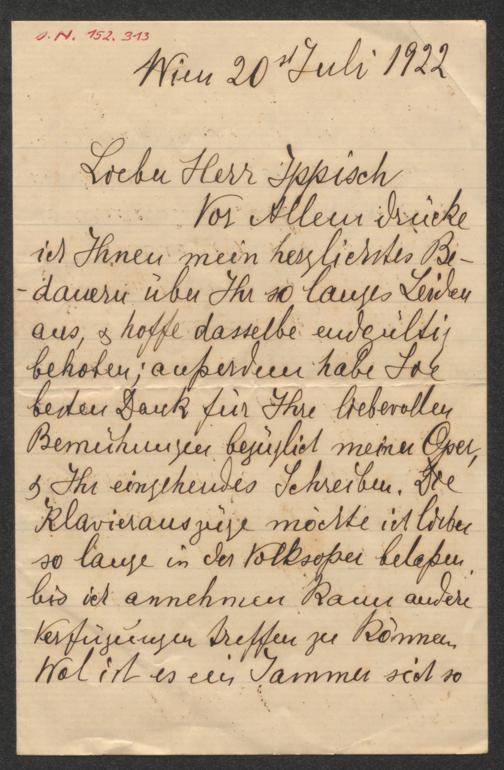 J.N. 152.313
Wien 20st Juli 1922
Lieber Herr Ippisch
Vor Allem drücke
ich Ihnen mein herzlichstes Be-
-dauern über Ihr so langes Leiden
aus, & hoffe dasselbe endgültig
behoben; außerdem habe Sie
besten Dank für Ihre liebevollen
Bemühungen bezüglich meiner Oper,
& Ihr eingehendes Schreiben. Die
Klavierauszüge möchte ich lieber
so lange in der Volksoper belaßen,
bis ich annehmen kann andere
Verfügungen treffen zu können.
Wol ist es ein Jammer sich so